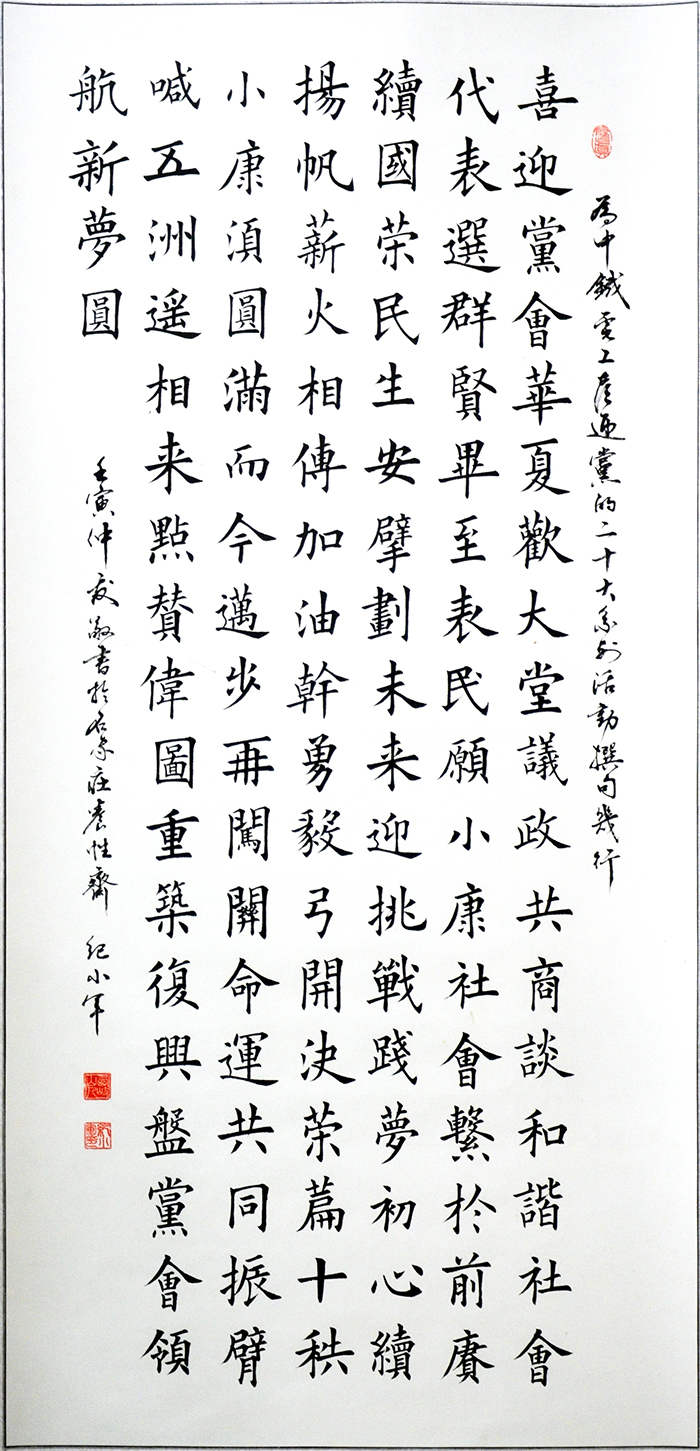 為中鐵電工迎黨的二十大系列活動撰句幾行
喜迎黨會華夏歡大堂議政共商談和諧社會
代表選群賢畢至表民願小康社會繫於前賡
續國荣民生安擘劃未来迎挑戰踐夢初心續
揚帆薪火相傳加油幹勇毅弓開决荣篇十秩
小康湏圓滿而今邁步再闖關命運共同振臂
喊五洲遥相来點贊偉圖重築復興盤黨會領
航新夢圓
壬寅仲夏敬書於石家庄養性齋 紀小军